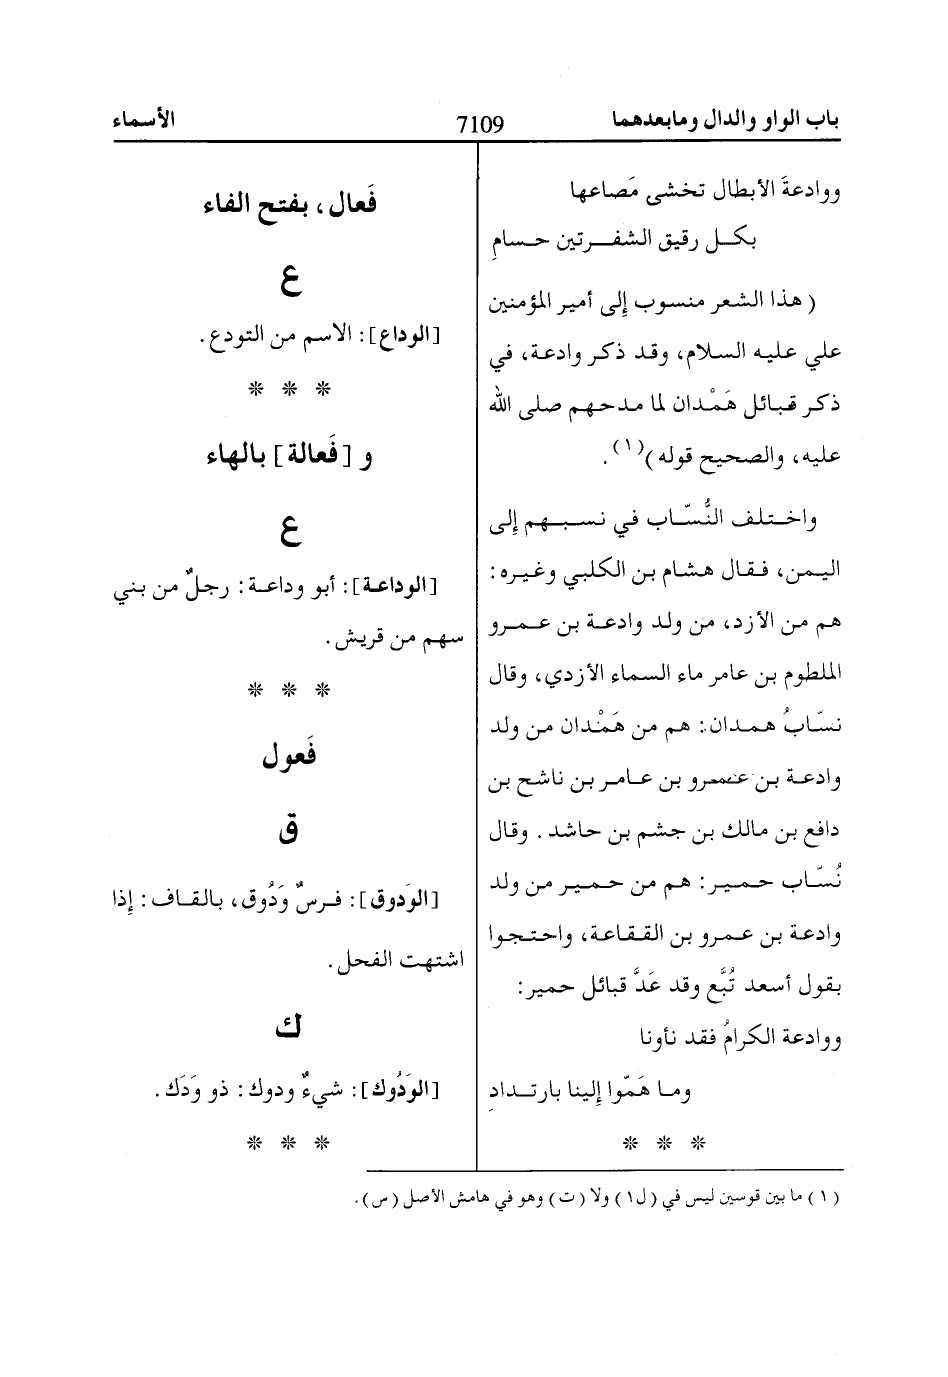 باب الواو والدال ومابعدهما 7109 الأسماء
ووادعةَ الأبطال تخشى مَصاعها
بكـل رقيق الشفـرتين حسـامِ
( هذا الشعر منسوب إلى أمير المؤمنين
علي عليه السلام، وقد ذكر وادعة، في
ذكر قبائل هَمْدان لما مدحهم صلى الله
عليه، والصحيح قوله)(١).
واختلف النُّسّاب في نسبهم إلى
اليمن، فقال هشام بن الكلبي وغيره:
هم من الأزد، من ولد وادعة بن عمرو
الملطوم بن عامر ماء السماء الأزدي، وقال
نسّابُ همدان: هم من هَمْدان من ولد
وادعة بن عمرو بن عامر بن ناشج بن
دافع بن مالك بن جشم بن حاشد. وقال
نُسّاب حمير: هم من حمير من ولد
وادعة بن عمرو بن القفاعة، واحتجوا
بقول أسعد تُبَّع وقد عَدَّ قبائل حمير:
ووادعة الكرامُ فقد نأونا
وما هَمّوا إلينا بارتدادِ
* * *
فَعال، بفتح الفاء
ع
[الوداع]: الاسم من التودع.
* * *
و [فَعالة] بالهاء
ع
[الوداعة]: أبو وداعة: رجلٌ من بني
سهم من قريش.
* * *
فَعول
ق
[الوَدوق]: فرسٌ وَدُوق، بالقاف: إذا
اشتهت الفحل.
ك
[الوَدُوك]: شيءٌ ودوك: ذو وَدَك.
* * *
(١) ما بين قوسين ليس في (ل١) ولا (ت) وهو في هامش الأصل (س).